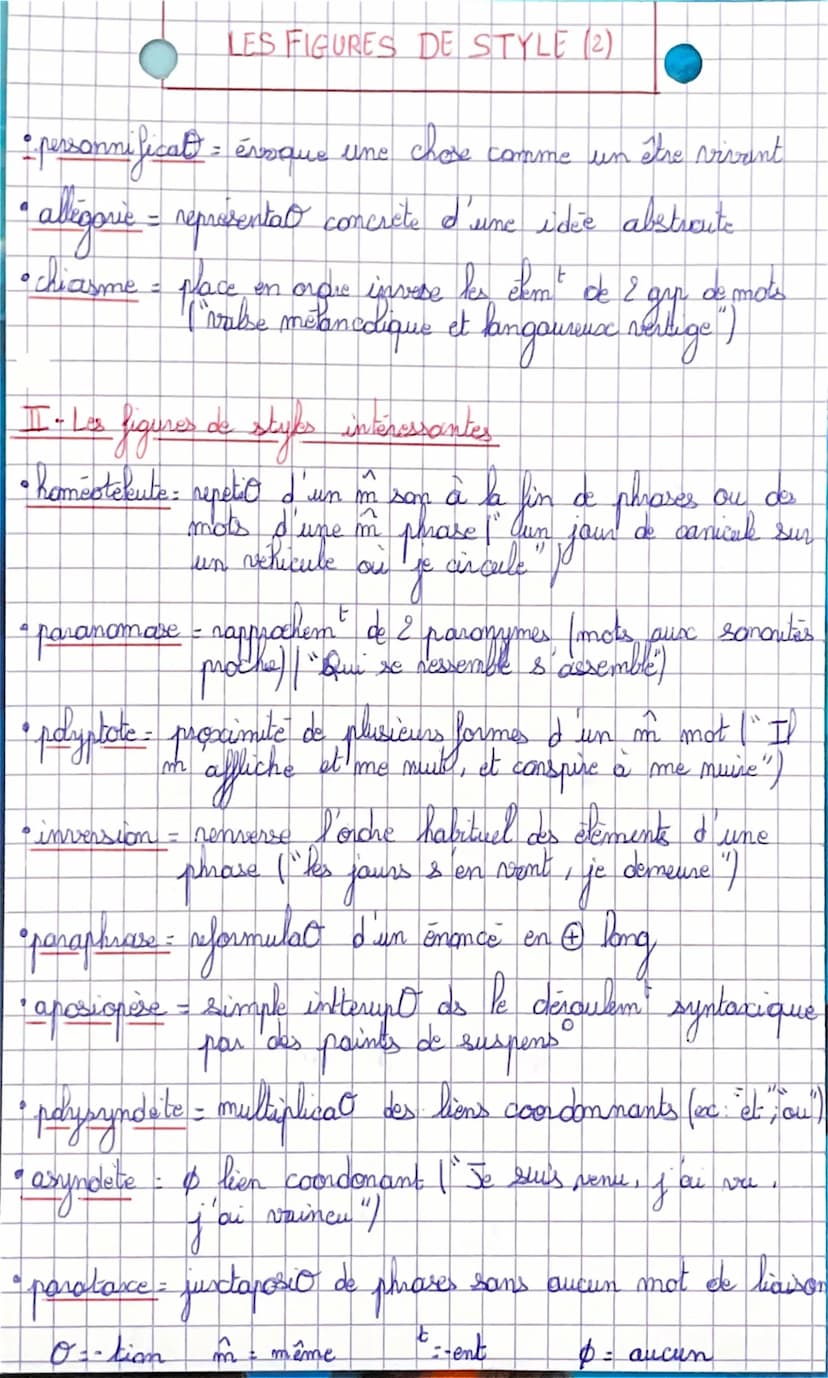 LES FIGURES DE STYLE (2)
• personnificatO = évoque une chose comme un être vivant
• allégorie = représentatO concrète d'une idée abstraite
• chiasme = place en ordre inverse les élemᵗ de 2 grp de mots
("valse mélancolique et langoureux vertige")
II - Les figures de styles intéressantes
• homéotéleute = repetiO d'un m̂ son à la fin de phrases ou des
mots d'une m̂ phrase ("d'un jour de canicule sur
un véhicule où je circule")
• paranomase = rapprochemᵗ de 2 paronymes (mots aux sonorités
proche) ("Qui se ressemble s'assemble")
• polyptote = proximité de plusieurs formes d'un m̂ mot ("Il
m'affliche et me nuit, et conspire à me nuire")
• inversion = renverse l'ordre habituel des éléments d'une
phrase ("les jours s'en vont, je demeure")
• paraphrase = reformulatO d'un énoncé en ⊕ long
• aposiopèse = simple intterupO ds le déroulemᵗ syntaxique
par des points de suspensO
• polysyndète = multiplicatO des liens coordonnants (ex: "et", "ou")
• asyndète = ϕ lien coordonant ("Je suis venu, j'ai vu,
j'ai vaincu")
• parataxe = juxtaposiO de phrases sans aucun mot de liaison
O = -tion m̂ = même ᵗ = -ent ϕ = aucun